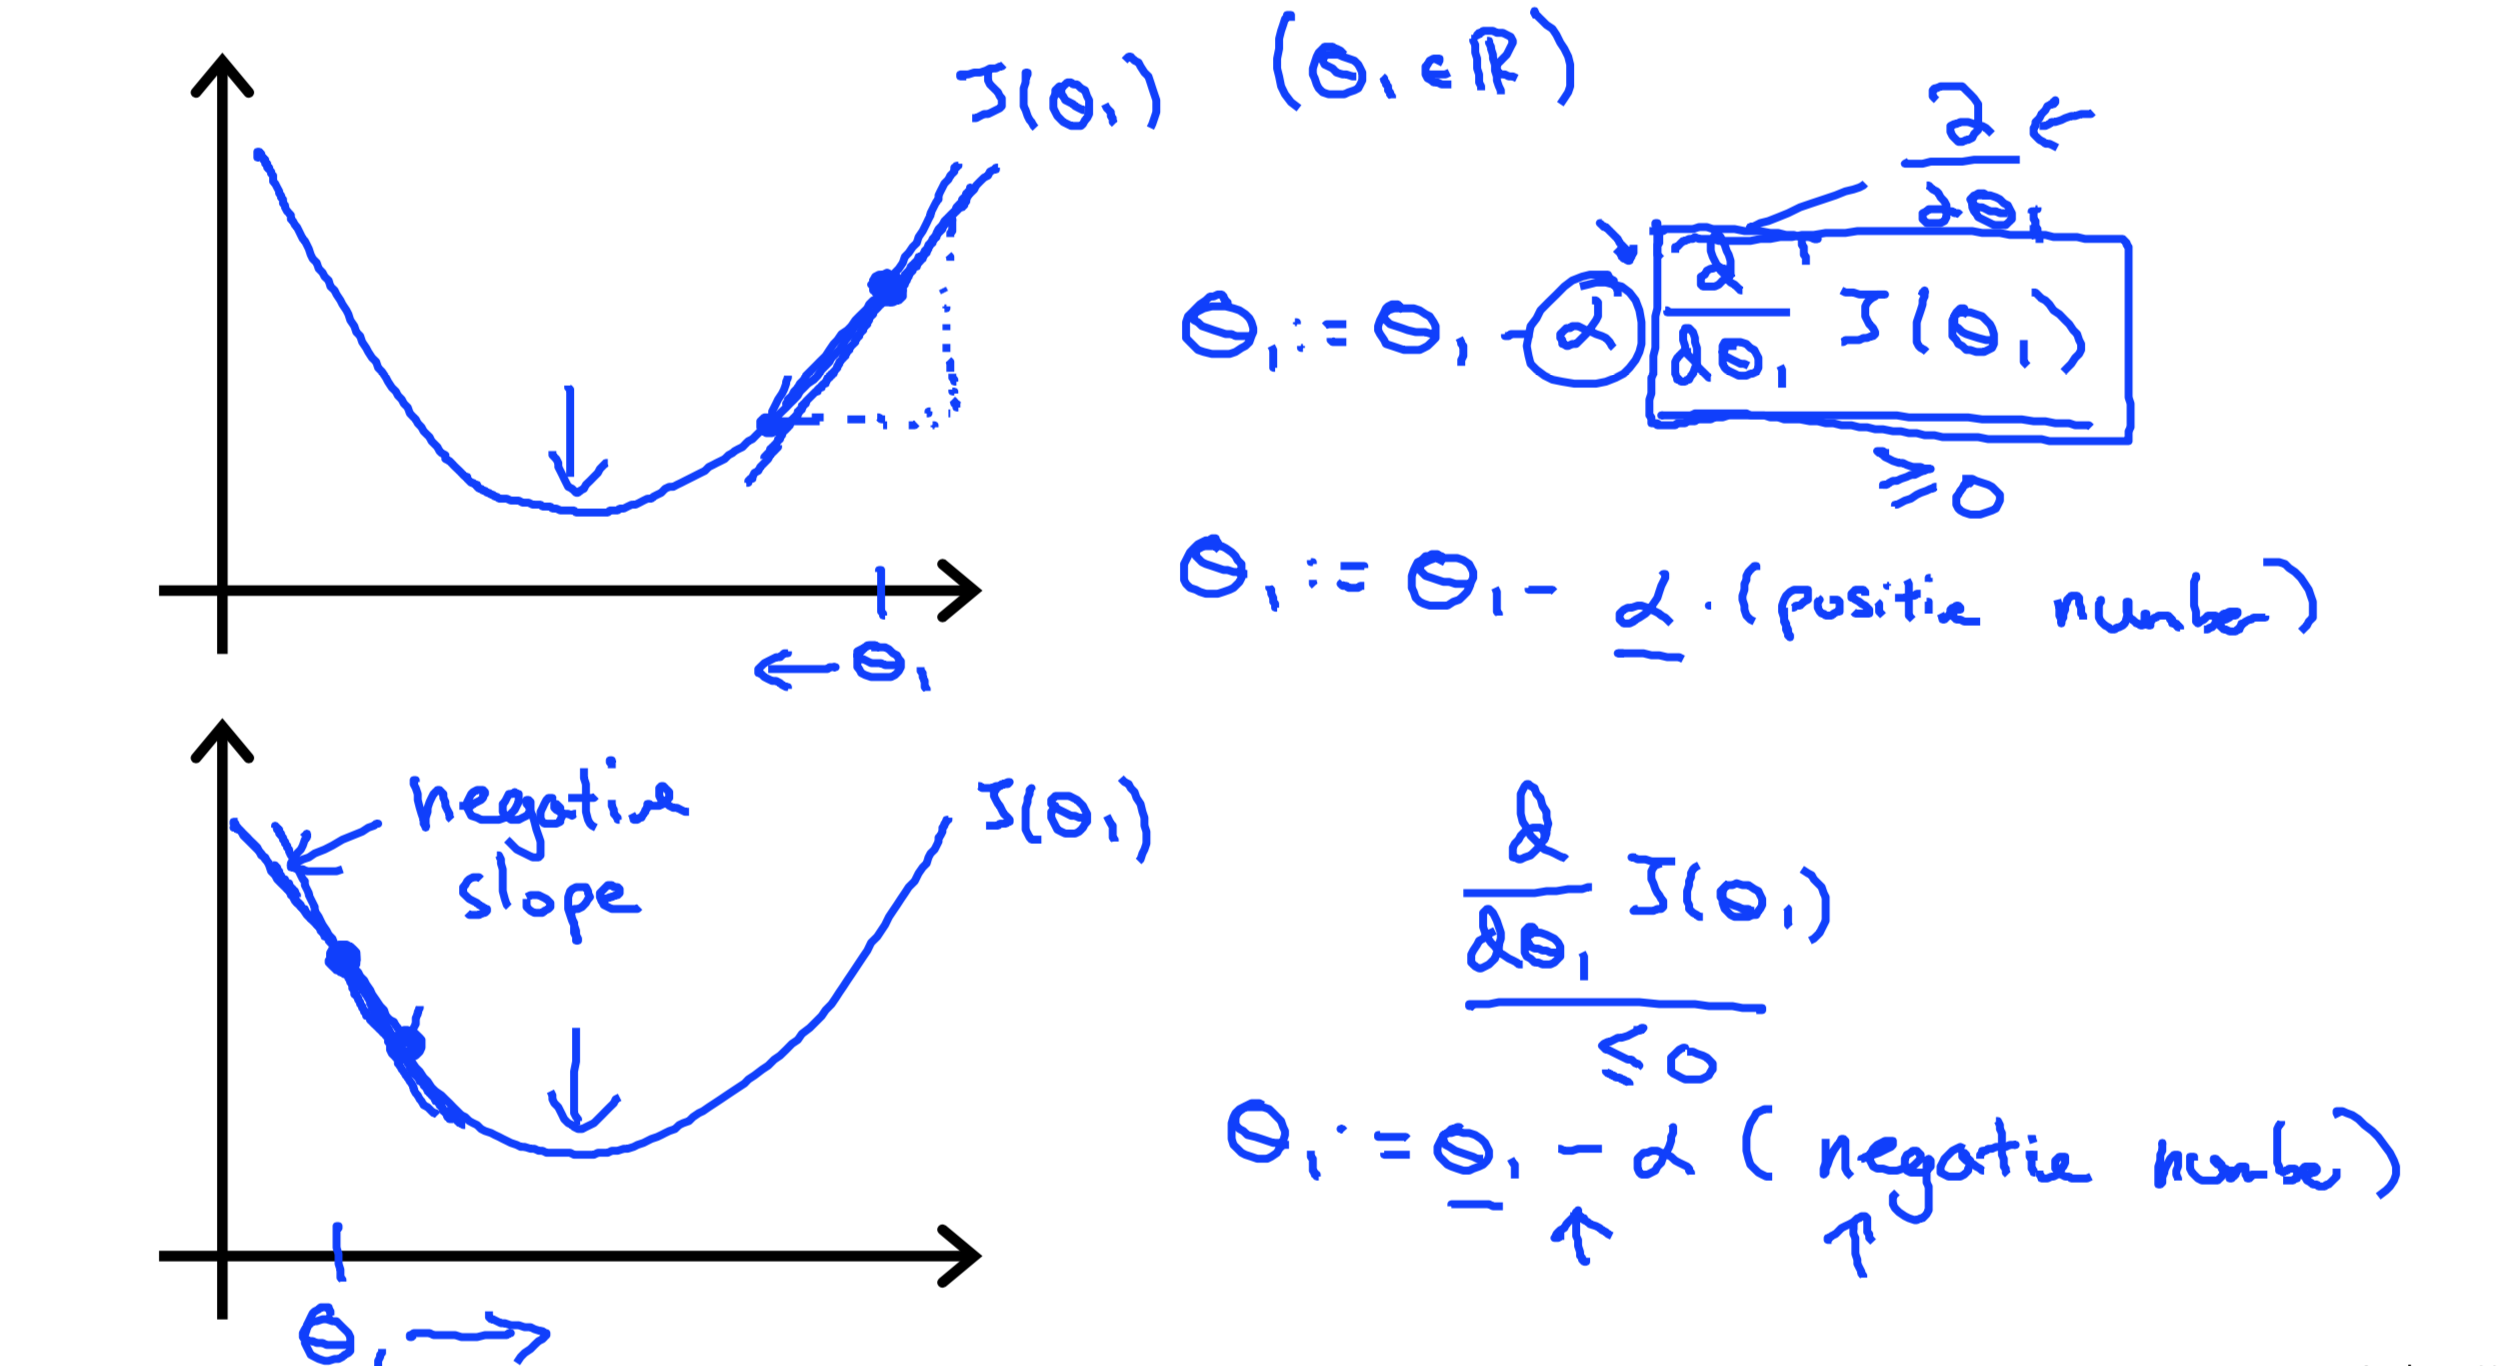 J(θ₁) (θ₁ ∈ ℝ)
∂ ←
∂θ₁
θ₁ := θ₁ - α d/dθ₁ J(θ₁)
≥ 0
θ₁ := θ₁ - α · (positive number)
← θ₁
negative
slope
J(θ₁)
d/dθ₁ J(θ₁)
≤ 0
θ₁ := θ₁ - α (negative number)
↑ ↑
θ₁ →